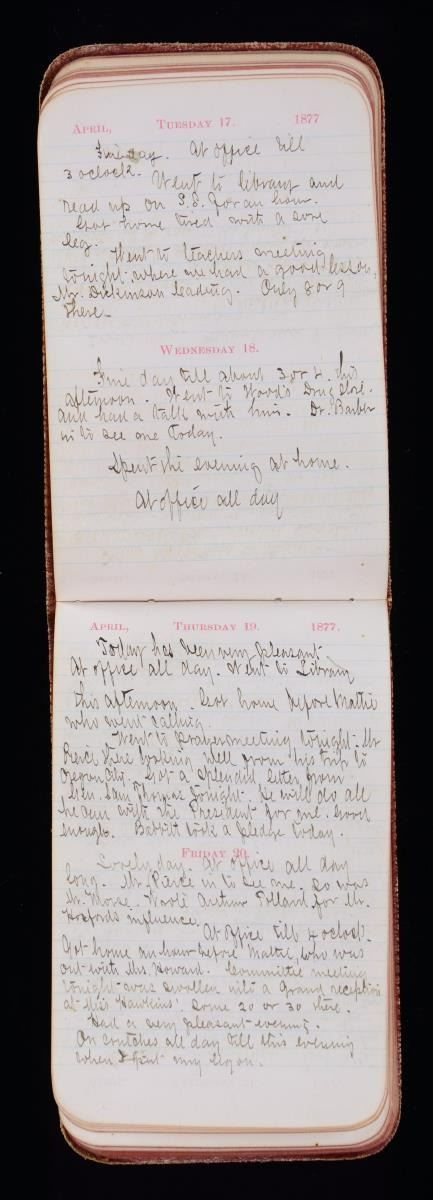 APRIL, TUESDAY 17. 1877
Fine day. At office till
3 oclock. Went to library and
read up on S.S. for an hour.
Got home tired with a sore
leg.
Went to teachers meeting
tonight, where we had a good lesson,
Mr. Dickinson leading. Only 8 or 9
there.
WEDNESDAY 18.
Fine day till about 3 or 4. this
afternoon. Went to Wood's Drug Store.
and had a talk with him. Dr. Barber
in to see me today.
Spent the evening at home.
At office all day
APRIL, THURSDAY 19. 1877.
Today has been very pleasant
At office all day. Went to Library
this afternoon. Got home before Mattie
who went calling.
Went to Prayermeeting tonight. Mr
Pierce there looking well from his trip to
Oregon City. Got a splendid letter from
Gen. Sam Thomas tonight. He will do all
he can with the President for me. Good
enough. Babbitt took a pledge today.
FRIDAY 20.
Lovely day. At office all day
long. Mr. Pierce in to see me. So was
Mr. Morse. Wrote Arthur for Mr.
influence.
At office till 4 oclock.
Got home an hour before Mattie, who was
out with Mrs Howard. Committee meeting
tonight was swollen into a Grand reception
at Miss Hawkins'. Some 20 or 30 there.
Had a very pleasant evening.
On crutches all day till this evening
when I put my leg on.